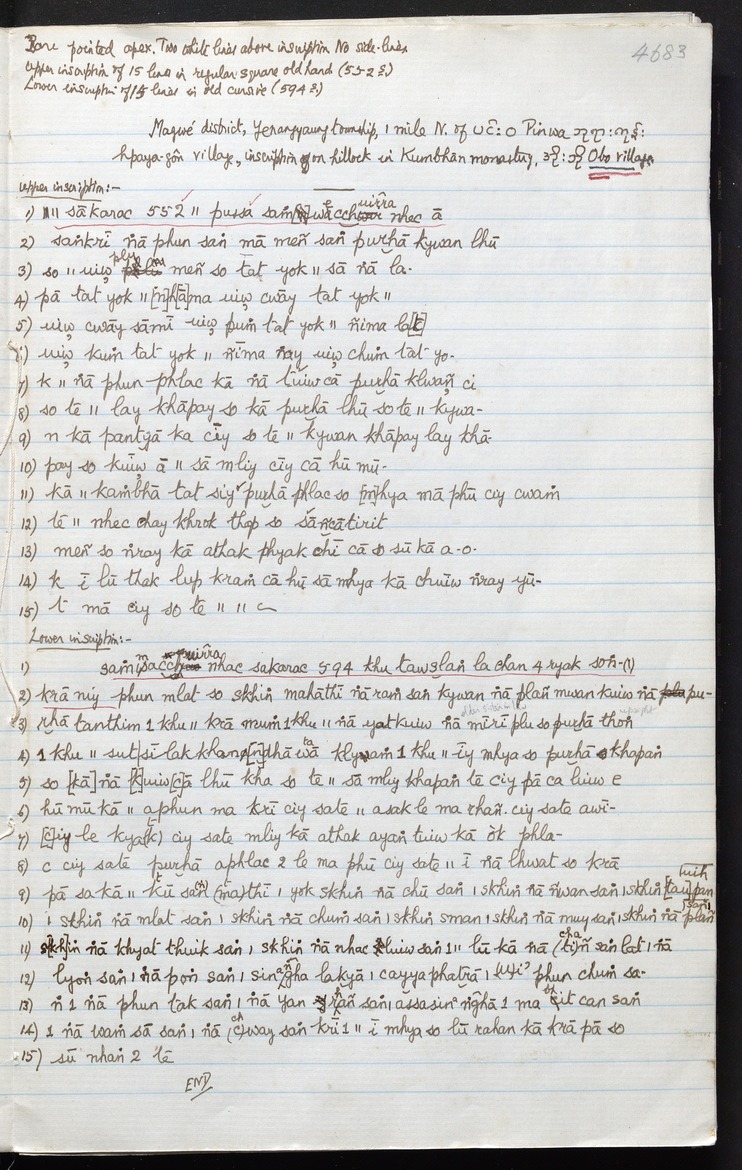 Bare pointed apex. Two white lines above inscription No side-lines
4683
Upper inscription of 15 lines in regular square old hand (552 s.)
Lower inscription of 15 lines in old cursive (594 s.)
Magwé district, Yenangyaung township, 1 mile N. of Pinwa
hpaya-gôn village, inscription on hillock in Kumbhān monastery, Obo village
upper inscription:-
1) sākarac 552 " pussa nhec ā
2) saṅkrī ṅā phun saṅ mā meṅ saṅ purhā kywan lhū
3) so " uiw meṅ so tat yok " sā ṅā la-
4) pā tat yok " [n]h[ā]ma uiw cwāy tat yok "
5) uiw cwāy sāmī uiw puṁ tat yok " ñima
6) uiw kuṁ tat yok " ñīma ṅay uiw chuṁ tat yo-
7) k " ṅā phun phlac kā ṅā tuiw cā purhā klwañ ci
8) so tē " lay khāpay so kā purhā lhū so te " kywa-
9) n kā pantyā ka ciy so te " kywan khāpay lay khā-
10) pay so kuiw ā " sā mliy cīy cā hū mū-
11) kā " kambhā tat siy purhā phlac so [m]hya mā phū ciy cwaṁ
12) tē " nhec chay khrok thap so sāñcātirit
13) meñ so ṅray kā athak phyak chī cā so sū kā a-o-
14) k ī lū thak lup kraṁ cā hū sā mhya kā chuiw ṅray yū-
15) t mā ciy so te " "
Lower inscription:-
1) nhac sakarac 594 khu tawslaṅ la chan 4 ryak soṅ-(1)
2) krā niy phun mlat so skhin mahāthī ṅā ram saṅ kywan ṅā plañ mwan kuiw ṅā pu-
3) rhā tanthim 1 khu " krā mum 1 khu " ṅā yat kuiw ṅā mīrī plu so purhā thoṅ
4) 1 khu " sut si lak khan dhā wā klywam 1 khu " īy mhya so purhā khapaṅ
5) so [kā] ṅā [k]uiw[c]ā lhū kha so te " sā mliy khapaṅ tē ciy pā ca luiw e
6) hū mū kā " aphun ma krī ciy sate " asak le ma rhañ. ciy sate awī-
7) [c]iy le kya(k) ciy sate mliy kā athak ayaṅ tuiw kā òk phla-
8) c ciy sate purhā aphlac 2 le ma phū ciy sate " ī ṅā lhwat so krā
9) pā sa kā " kū saṅ (ma)thī 1 yok skhin ṅā chū saṅ 1 skhin ṅā ṅwan saṅ 1 skhin [tau] pan
10) 1 skhin ṅā mlat saṅ 1 skhin ṅā chuṁ saṅ 1 skhin sman 1 skhin ṅā muy saṅ 1 skhin ṅā plañ
11) ṅā khyat thuik saṅ 1 skhin ṅā nhac luiw saṅ 1 " lū kā ṅā saṅ lat 1 ṅā
12) lyoṅ saṅ 1 ṅā poṅ saṅ 1 lakyā 1 cayyaphatrā 1 phun chuṁ sa-
13) ṅ 1 ṅā phun tak saṅ 1 ṅā yan saṅ 1 assasin ṅghā 1 ma cit can saṅ
14) 1 ṅā waṁ sā saṅ 1 ṅā (c)way saṅ krī 1 " ī mhya so lū rahan kā krā pā so
15) sū nhaṅ 2 tē
END